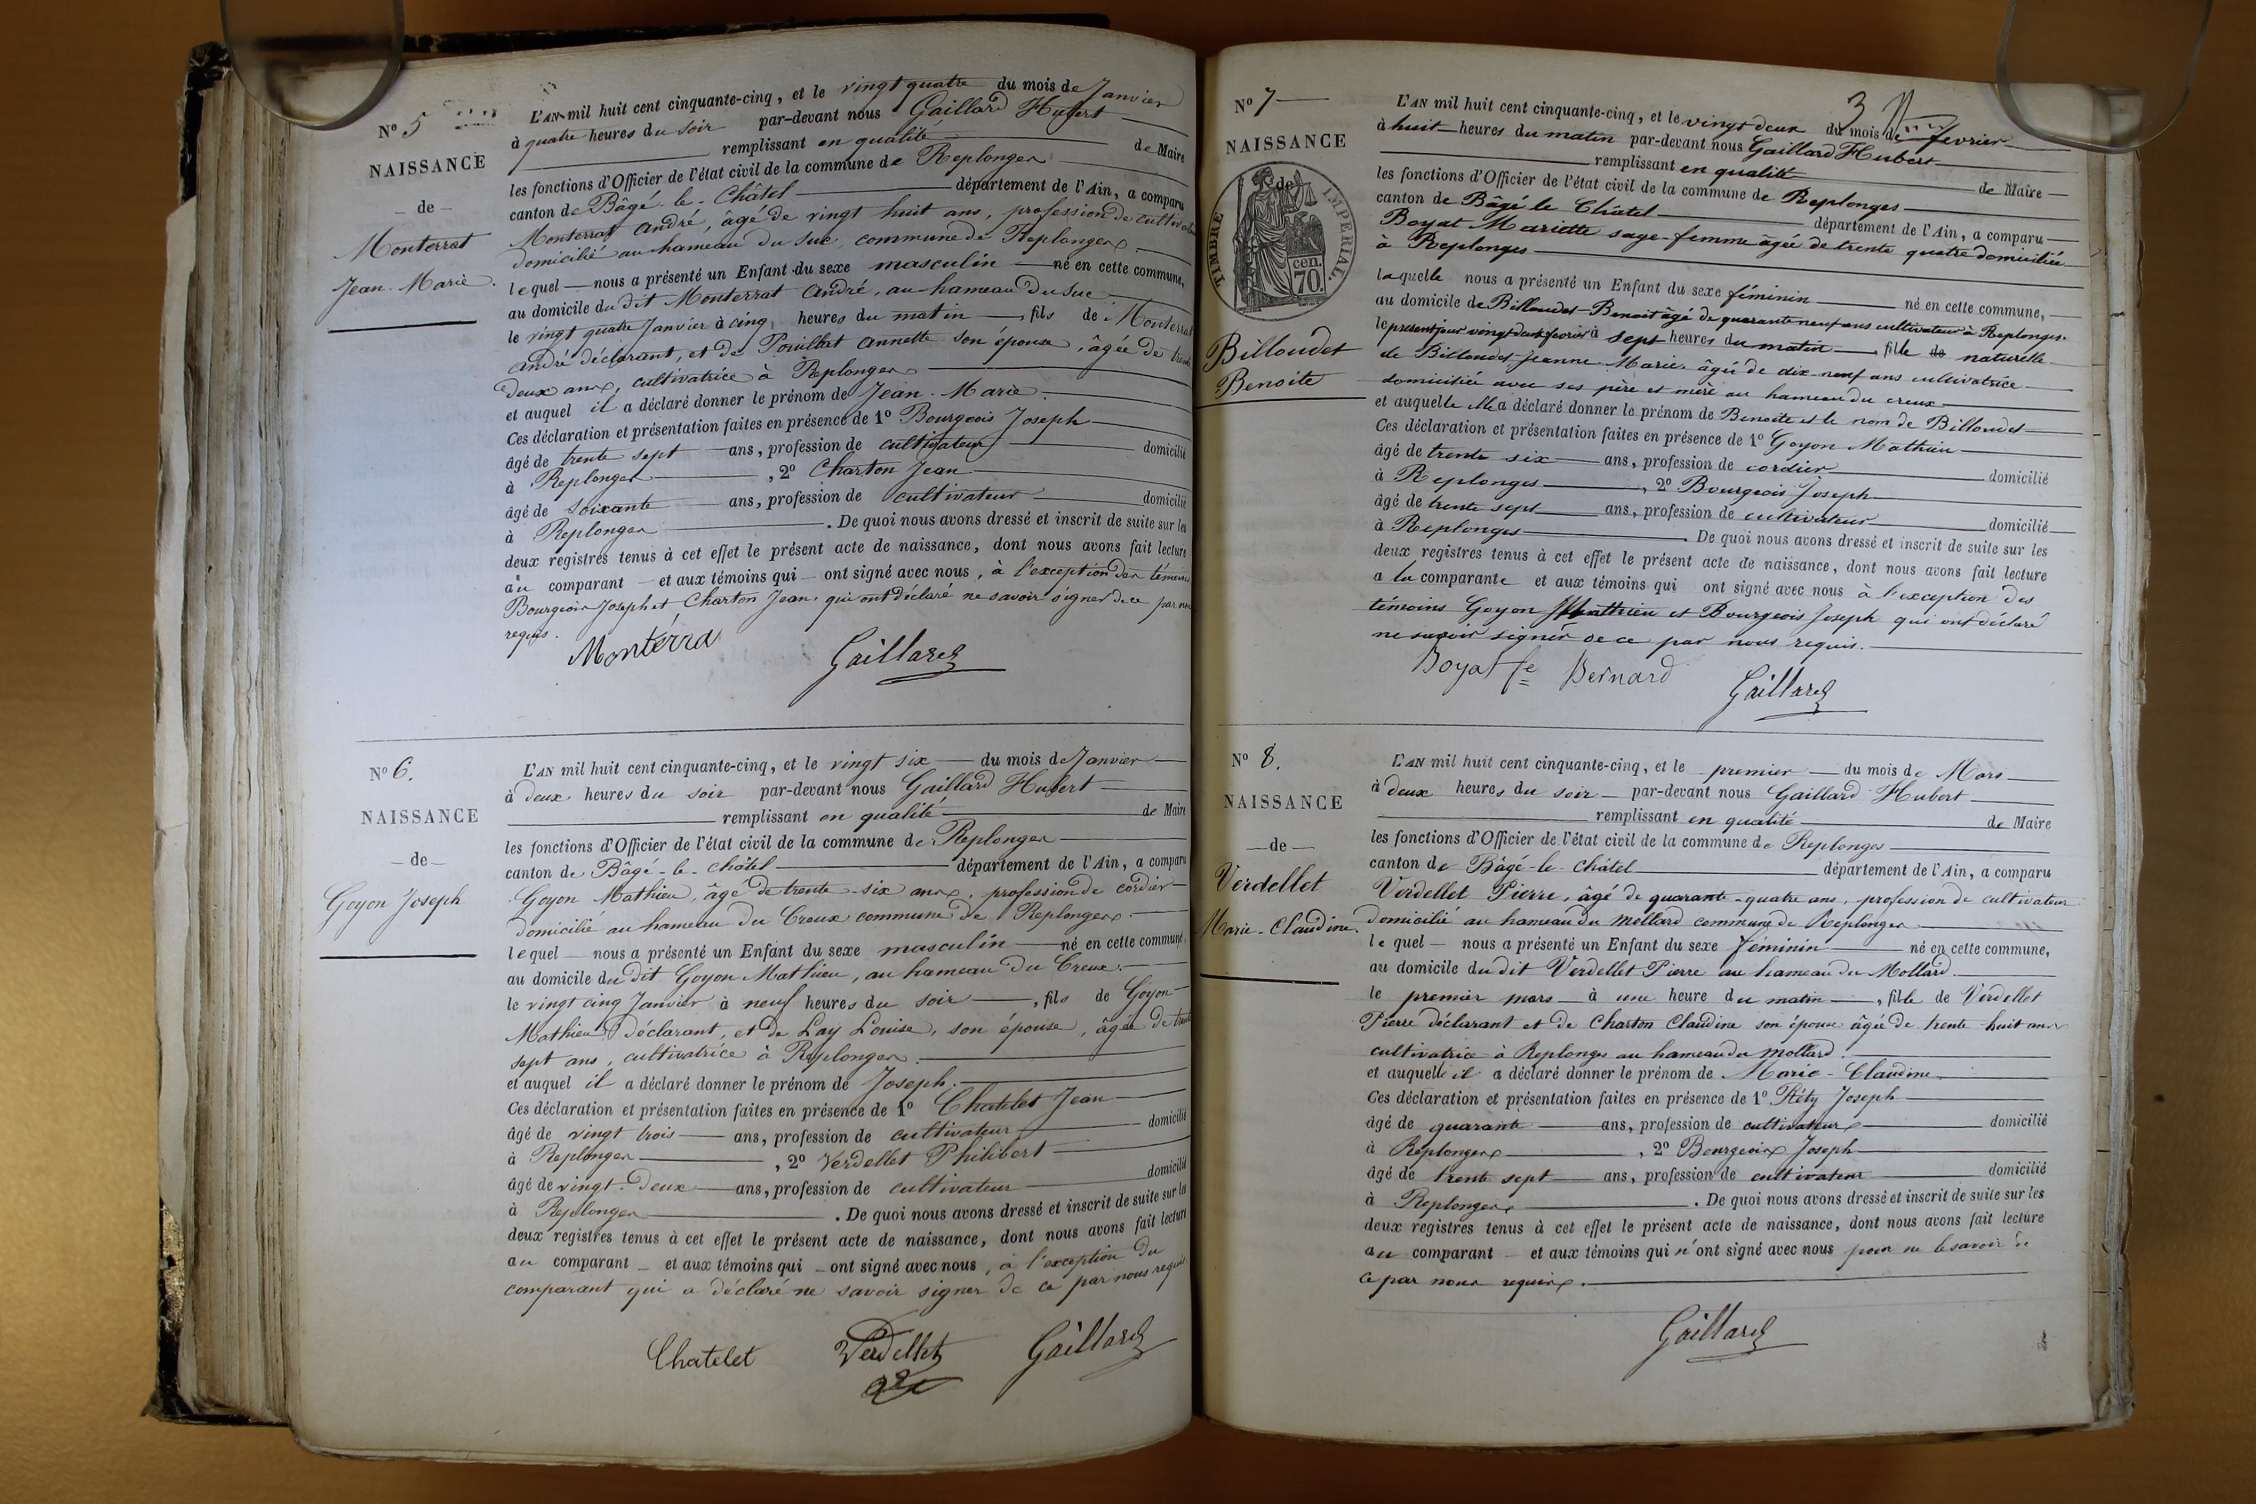 N° 5
NAISSANCE
— de —
Monterrat
Jean-Marie.
L'AN mil huit cent cinquante-cinq, et le vingt quatre du mois de Janvier
à quatre heures du soir par-devant nous Gaillard Hubert
remplissant en qualité de Maire
les fonctions d'Officier de l'état civil de la commune de Replonges
canton de Bâgé-le-Châtel département de l'Ain, a comparu
Monterrat André, âgé de vingt huit ans, profession de cultivateur
domicilié au hameau du Suc, commune de Replonges
lequel nous a présenté un Enfant du sexe masculin né en cette commune,
au domicile du dit Monterrat André, au hameau du Suc
le vingt quatre Janvier à cinq heures du matin, fils de Monterrat
André déclarant, et de Annette son épouse, âgée de trente
deux ans, cultivatrice à Replonges
et auquel il a déclaré donner le prénom de Jean-Marie.
Ces déclaration et présentation faites en présence de 1° Bourgeois Joseph
âgé de trente sept ans, profession de cultivateur domicilié
à Replonges, 2° Charton Jean
âgé de soixante ans, profession de cultivateur domicilié
à Replonges. De quoi nous avons dressé et inscrit de suite sur les
deux registres tenus à cet effet le présent acte de naissance, dont nous avons fait lecture
au comparant et aux témoins qui ont signé avec nous, à l'exception des témoins
Bourgeois Joseph et Charton Jean qui ont déclaré ne savoir signer de ce par nous
requis.
Montérra Gaillard
N° 6.
NAISSANCE
— de —
Goyon Joseph
L'AN mil huit cent cinquante-cinq, et le vingt six du mois de Janvier
à deux heures du soir par-devant nous Gaillard Hubert
remplissant en qualité de Maire
les fonctions d'Officier de l'état civil de la commune de Replonges
canton de Bâgé-le-Châtel département de l'Ain, a comparu
Goyon Mathieu, âgé de trente-six ans, profession de cordier
domicilié au hameau du Creux commune de Replonges.
lequel nous a présenté un Enfant du sexe masculin né en cette commune,
au domicile du dit Goyon Mathieu, au hameau du Creux.
le vingt cinq Janvier à neuf heures du soir, fils de Goyon
Mathieu déclarant, et de Lay Louise, son épouse, âgée de trente
sept ans, cultivatrice à Replonges.
et auquel il a déclaré donner le prénom de Joseph.
Ces déclaration et présentation faites en présence de 1° Chatelet Jean
âgé de vingt trois ans, profession de cultivateur domicilié
à Replonges, 2° Verdellet Philibert
âgé de vingt-deux ans, profession de cultivateur domicilié
à Replonges. De quoi nous avons dressé et inscrit de suite sur les
deux registres tenus à cet effet le présent acte de naissance, dont nous avons fait lecture
au comparant et aux témoins qui ont signé avec nous, à l'exception du
comparant qui a déclaré ne savoir signer de ce par nous requis
Chatelet Verdellet Gaillard
3
N° 7
NAISSANCE
de
TIMBRE IMPÉRIAL.
cen.
70.
Billoudet
Benoite
L'AN mil huit cent cinquante-cinq, et le vingt deux du mois de fevrier
à huit heures du matin par-devant nous Gaillard Hubert
remplissant en qualité de Maire
les fonctions d'Officier de l'état civil de la commune de Replonges
canton de Bâgé le Châtel département de l'Ain, a comparu
Boyat Mariette sage-femme âgée de trente quatre domiciliée
à Replonges
laquelle nous a présenté un Enfant du sexe féminin né en cette commune,
au domicile de Billoudet Benoit âgé de quarante neuf ans cultivateur à Replonges.
le présent jour vingt deux fevrier à sept heures du matin, fille de naturelle
de Billoudet Jeanne Marie âgée de dix-neuf ans cultivatrice
domiciliée avec ses père et mère au hameau du creux
et auquelle elle a déclaré donner le prénom de Benoite et le nom de Billoudet
Ces déclaration et présentation faites en présence de 1° Goyon Mathieu
âgé de trente six ans, profession de cordier domicilié
à Replonges, 2° Bourgeois Joseph
âgé de trente sept ans, profession de cultivateur domicilié
à Replonges. De quoi nous avons dressé et inscrit de suite sur les
deux registres tenus à cet effet le présent acte de naissance, dont nous avons fait lecture
a la comparante et aux témoins qui ont signé avec nous à l'exception des
témoins Goyon Mathieu et Bourgeois Joseph qui ont déclaré
ne savoir signer de ce par nous requis.
Boyat fe Bernard Gaillard
N° 8.
NAISSANCE
— de —
Verdellet
Marie-Claudine.
L'AN mil huit cent cinquante-cinq, et le premier du mois de Mars
à deux heures du soir par-devant nous Gaillard Hubert
remplissant en qualité de Maire
les fonctions d'Officier de l'état civil de la commune de Replonges
canton de Bâgé-le-Châtel département de l'Ain, a comparu
Verdellet Pierre, âgé de quarante-quatre ans, profession de cultivateur
domicilié au hameau du Mollard commune de Replonges
lequel nous a présenté un Enfant du sexe féminin né en cette commune,
au domicile du dit Verdellet Pierre au hameau du Mollard
le premier mars à une heure du matin, fille de Verdellet
Pierre déclarant et de Charton Claudine son épouse âgée de trente huit ans
cultivatrice à Replonges au hameau du Mollard.
et auquelle il a déclaré donner le prénom de Marie-Claudine
Ces déclaration et présentation faites en présence de 1° Réty Joseph
âgé de quarante ans, profession de cultivateur domicilié
à Replonges, 2° Bourgeois Joseph
âgé de trente sept ans, profession de cultivateur domicilié
à Replonges. De quoi nous avons dressé et inscrit de suite sur les
deux registres tenus à cet effet le présent acte de naissance, dont nous avons fait lecture
au comparant et aux témoins qui n'ont signé avec nous pour ne le savoir de
ce par nous requis.
Gaillard